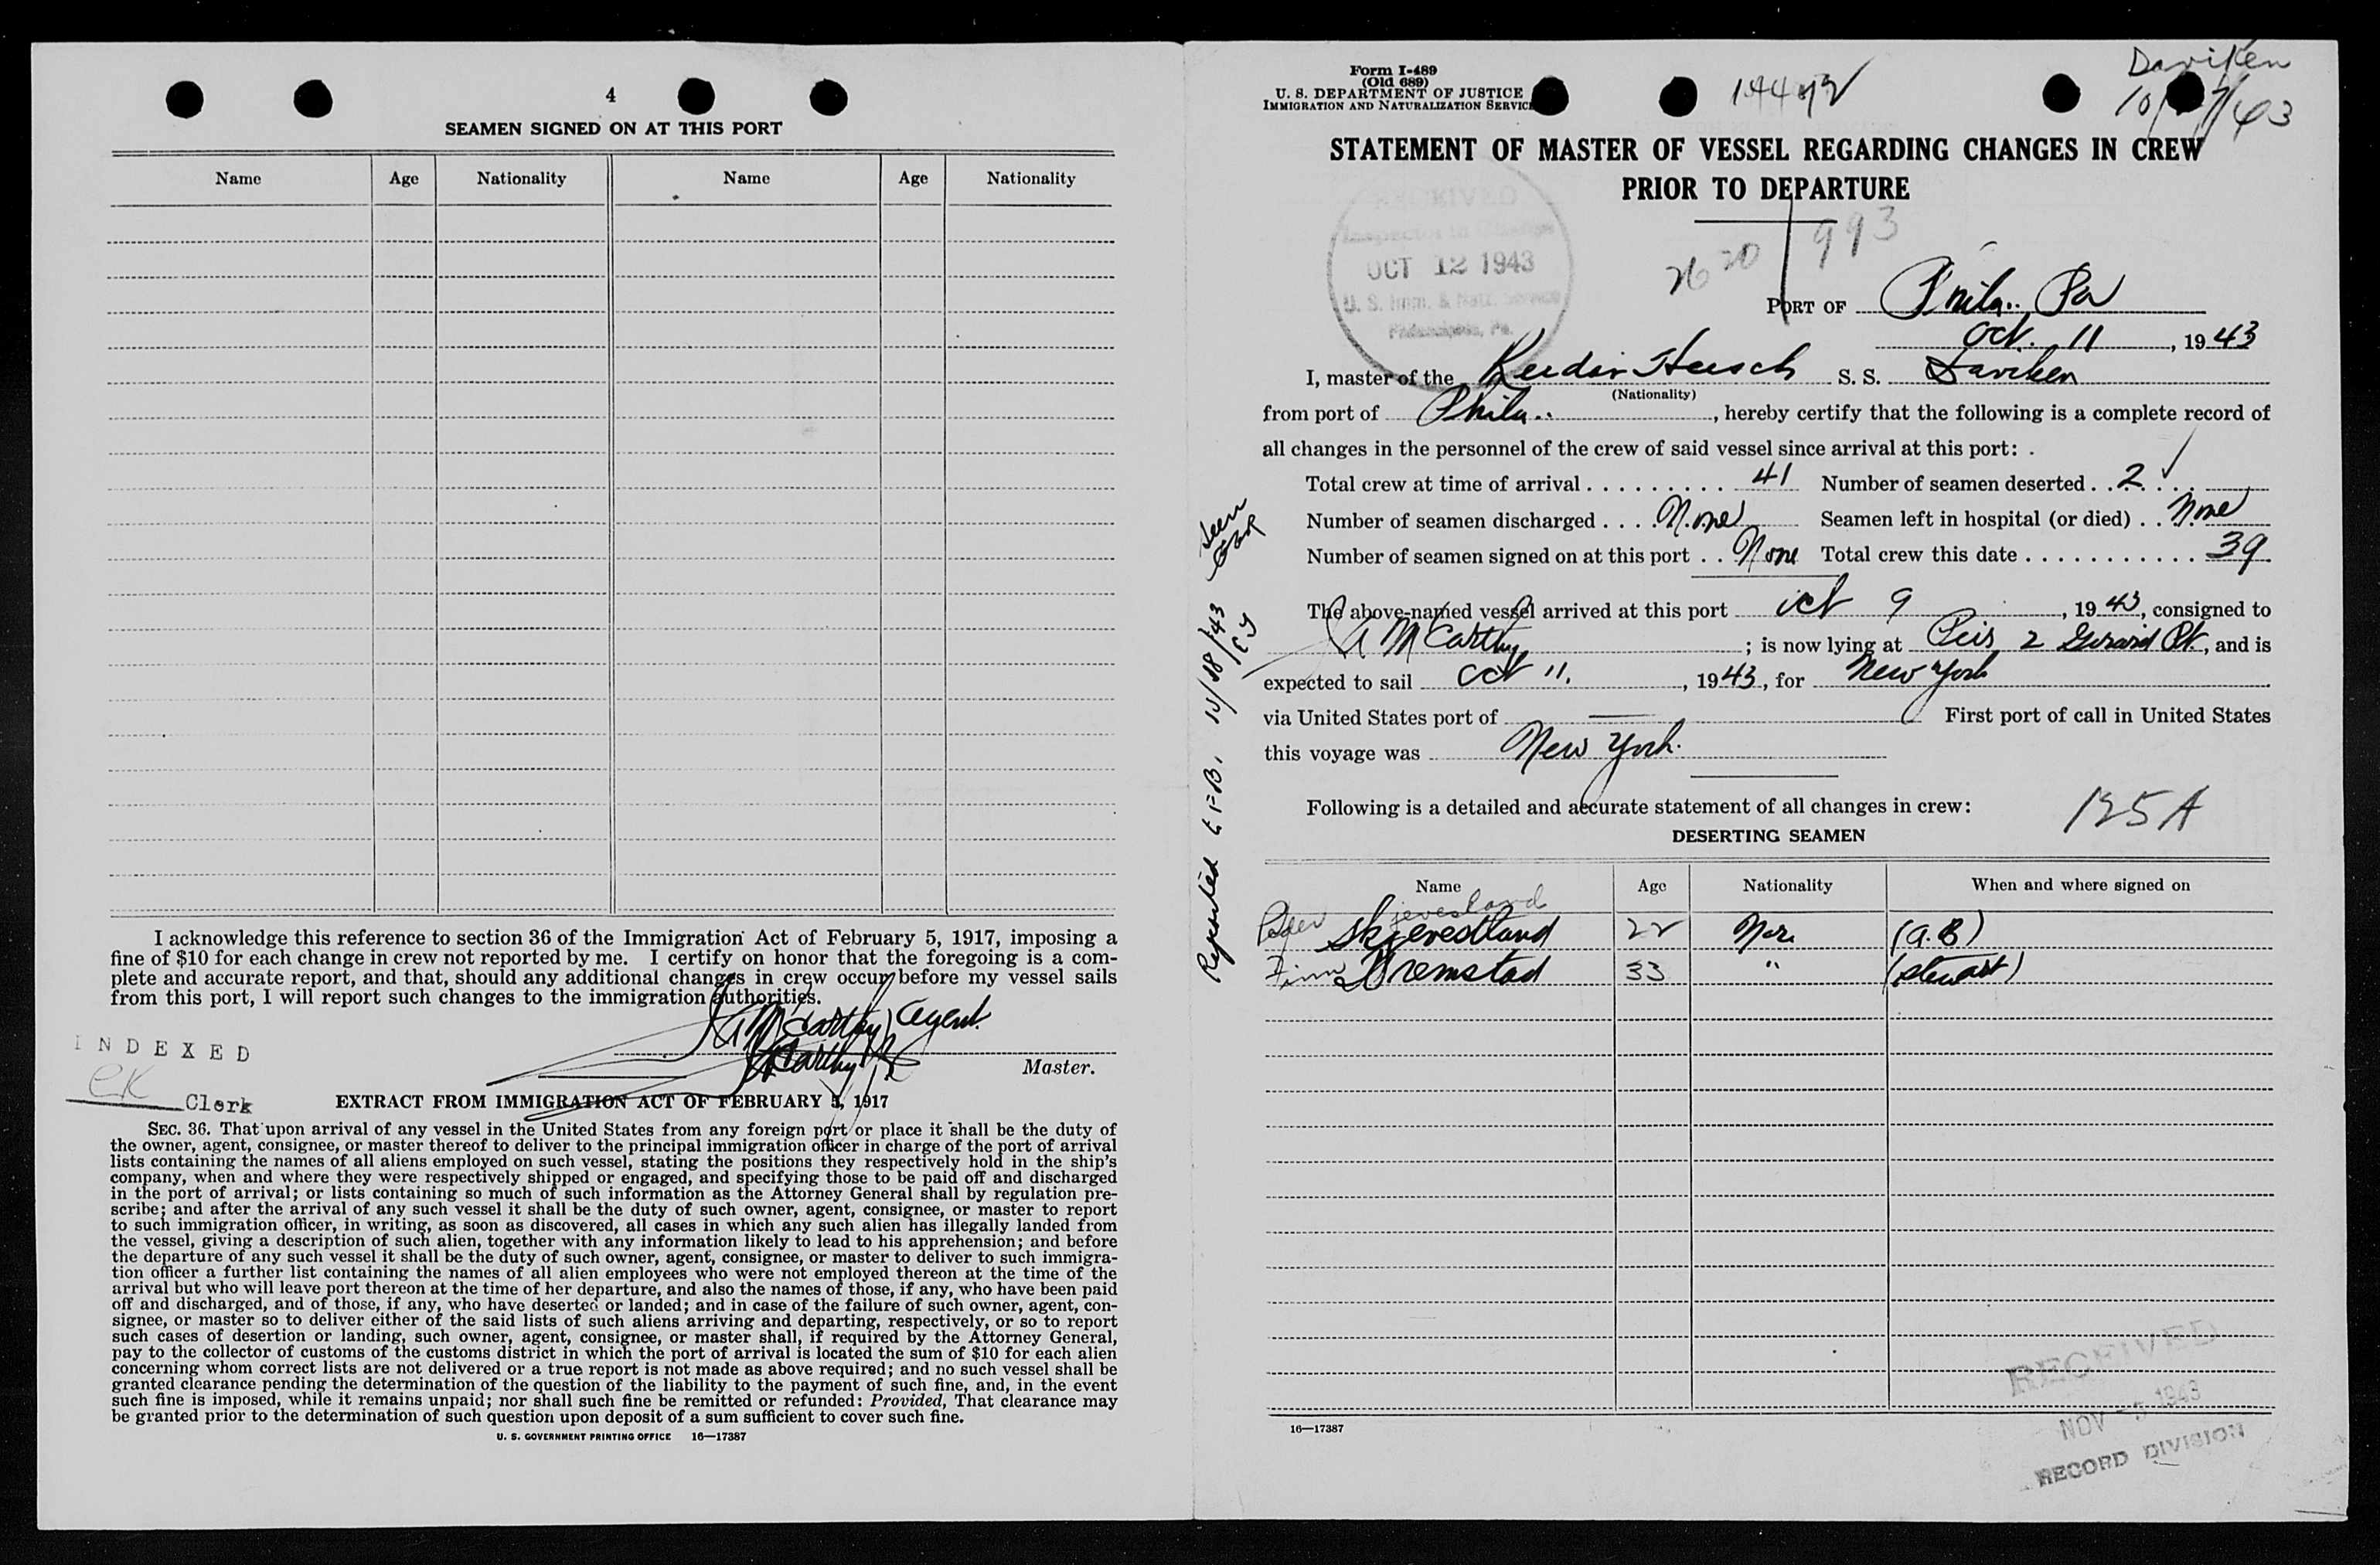 4
SEAMEN SIGNED ON AT THIS PORT
Name Age Nationality Name Age Nationality
I acknowledge this reference to section 36 of the Immigration Act of February 5, 1917, imposing a
fine of $10 for each change in crew not reported by me. I certify on honor that the foregoing is a com-
plete and accurate report, and that, should any additional changes in crew occur before my vessel sails
from this port, I will report such changes to the immigration authorities.
McCarthy Agent
Master.
INDEXED
CK Clerk
EXTRACT FROM IMMIGRATION ACT OF FEBRUARY 5, 1917
SEC. 36. That upon arrival of any vessel in the United States from any foreign port or place it shall be the duty of
the owner, agent, consignee, or master thereof to deliver to the principal immigration officer in charge of the port of arrival
lists containing the names of all aliens employed on such vessel, stating the positions they respectively hold in the ship's
company, when and where they were respectively shipped or engaged, and specifying those to be paid off and discharged
in the port of arrival; or lists containing so much of such information as the Attorney General shall by regulation pre-
scribe; and after the arrival of any such vessel it shall be the duty of such owner, agent, consignee, or master to report
to such immigration officer, in writing, as soon as discovered, all cases in which any such alien has illegally landed from
the vessel, giving a description of such alien, together with any information likely to lead to his apprehension; and before
the departure of any such vessel it shall be the duty of such owner, agent, consignee, or master to deliver to such immigra-
tion officer a further list containing the names of all alien employees who were not employed thereon at the time of the
arrival but who will leave port thereon at the time of her departure, and also the names of those, if any, who have been paid
off and discharged, and of those, if any, who have deserted or landed; and in case of the failure of such owner, agent, con-
signee, or master so to deliver either of the said lists of such aliens arriving and departing, respectively, or so to report
such cases of desertion or landing, such owner, agent, consignee, or master shall, if required by the Attorney General,
pay to the collector of customs of the customs district in which the port of arrival is located the sum of $10 for each alien
concerning whom correct lists are not delivered or a true report is not made as above required; and no such vessel shall be
granted clearance pending the determination of the question of the liability to the payment of such fine, and, in the event
such fine is imposed, while it remains unpaid; nor shall such fine be remitted or refunded: Provided, That clearance may
be granted prior to the determination of such question upon deposit of a sum sufficient to cover such fine.
U. S. GOVERNMENT PRINTING OFFICE 16—17387
Form I-489
(Old 689)
U. S. DEPARTMENT OF JUSTICE
IMMIGRATION AND NATURALIZATION SERVICE
Daviken
STATEMENT OF MASTER OF VESSEL REGARDING CHANGES IN CREW
PRIOR TO DEPARTURE
RECEIVED
Inspector in Charge
OCT 12 1943
U. S. Imm. & Natz. Service
Philadelphia, Pa.
2620/993
PORT OF Phila.. Pa
Oct. 11, 1943
I, master of the S. S. Daviken
(Nationality)
from port of Phila.., hereby certify that the following is a complete record of
all changes in the personnel of the crew of said vessel since arrival at this port:
Total crew at time of arrival . . . . . . . . . 41 Number of seamen deserted . . 2 ✓
Number of seamen discharged . . . . None Seamen left in hospital (or died) . . None
Number of seamen signed on at this port . . None Total crew this date . . . . . . . . . . . 39
The above-named vessel arrived at this port Oct 9, 1943, consigned to
McCarthy; is now lying at Pier 2 Girard Pt., and is
expected to sail Oct 11., 1943, for New York
via United States port of — First port of call in United States
this voyage was New York.
Following is a detailed and accurate statement of all changes in crew:
125A
DESERTING SEAMEN
Name Age Nationality When and where signed on
jevesland
Peder Skjevedland 22 Nor. (A.B)
Finn Bremstad 33 " (Steward)
Reported
Seen
16—17387
RECEIVED
NOV 1943
RECORD DIVISION